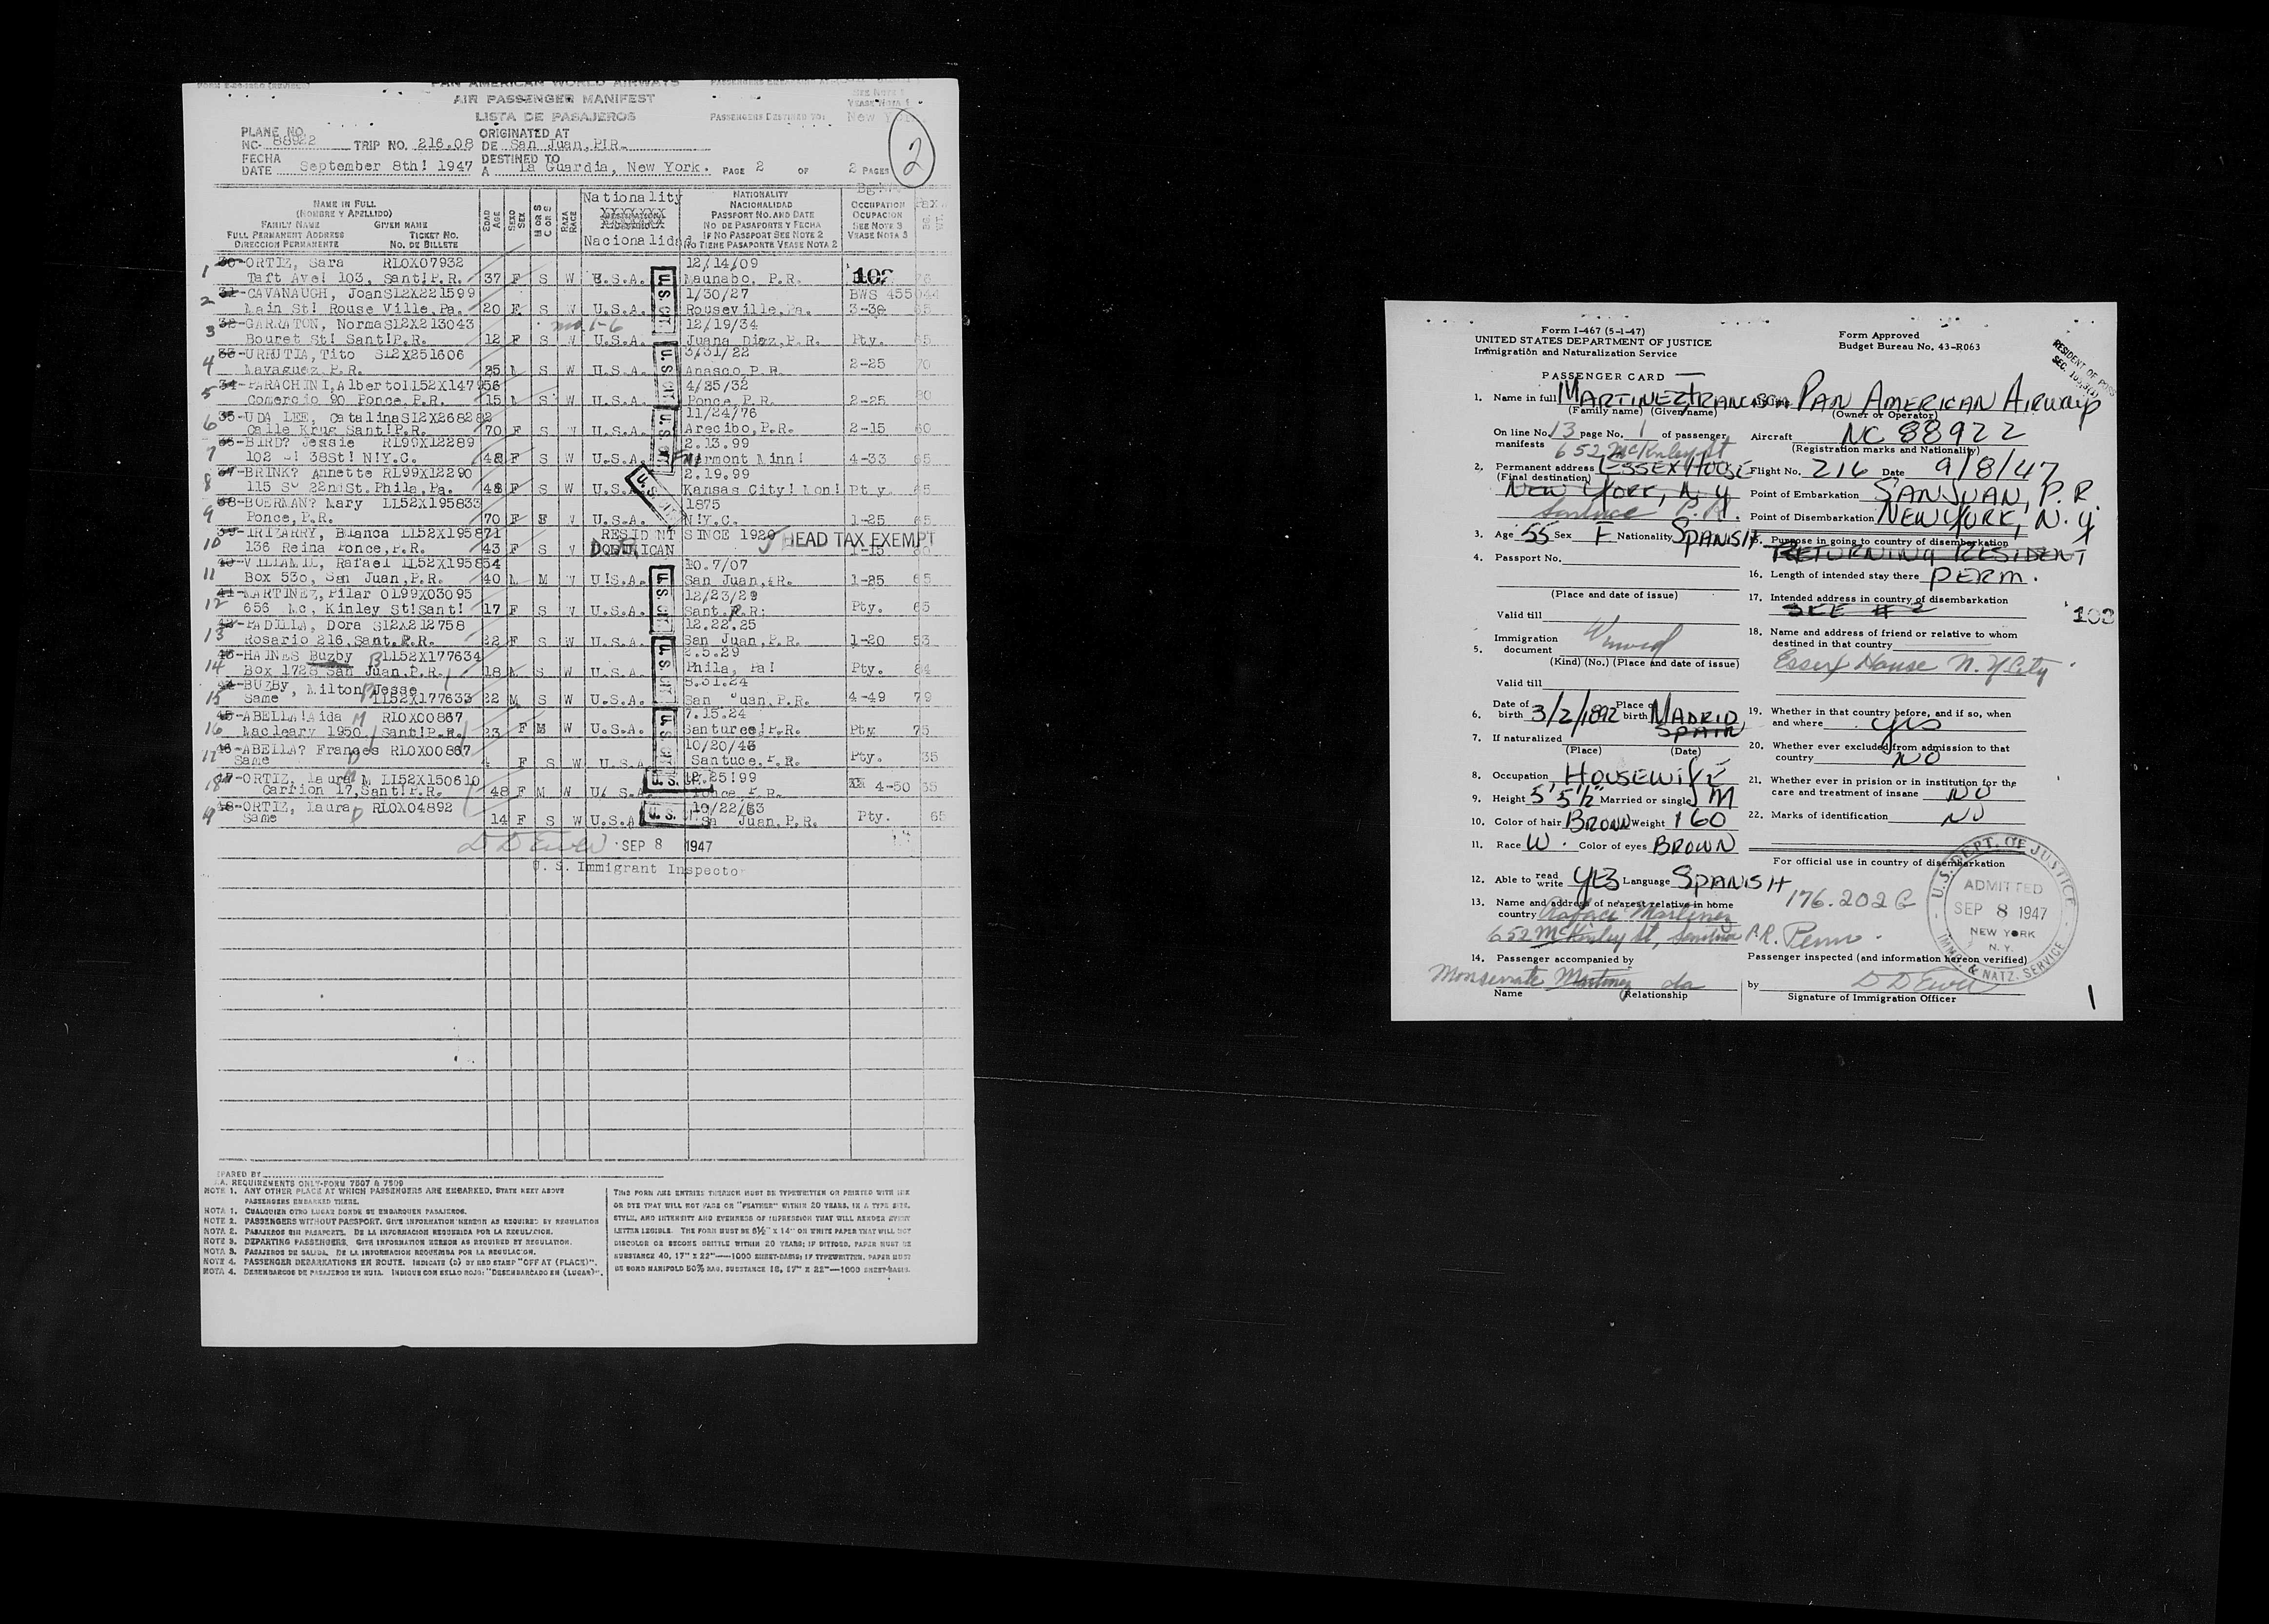 PAN AMERICAN WORLD AIRWAYS
AIR PASSENGER MANIFEST
LISTA DE PASAJEROS
PASSENGERS DESTINED TO:
SEE NOTE 1
VEASE NOTA 1
2
PLANE NO.
NC- 88922 TRIP NO. 216.08
ORIGINATED AT
DE San Juan, P.R.
FECHA
DATE September 8th! 1947
DESTINED TO
A La Guardia, New York. PAGE 2 OF 2 PAGES
NAME IN FULL
(NOMBRE Y APELLIDO)
FAMILY NAME GIVEN NAME
FULL PERMANENT ADDRESS TICKET NO.
DIRECCION PERMANENTE NO. DE BILLETE
EDAD AGE
SEXO SEX
M OR S
C OR S
RAZA RACE
Nationality
XXXXXXX
Nacionalidad
NATIONALITY
NACIONALIDAD
PASSPORT NO. AND DATE
NO. DE PASAPORTE Y FECHA
IF NO PASSPORT SEE NOTE 2
NO TIENE PASAPORTE VEASE NOTA 2
OCCUPATION
OCUPACION
SEE NOTE 3
VEASE NOTA 3
1 30-ORTIZ, Sara RLOX07932 12/14/09
Taft Ave! 103, Sant!P.R. 37 F S W U.S.A. Maunabo, P.R. 102
2 31-CAVANAUGH, JoanS12X221599 1/30/27 BWS 455
Main St! Rouse Ville, Pa. 20 F S W U.S.A. Rouseville, Pa. 3-30
3 32-GARRATON, NormaS12X213043 12/19/34
Bouret St! Sant!P.R. 12 F S W U.S.A. Juana Diaz, P.R. Pty.
4 33-URRUTIA, Tito S12X251606 3/31/22
Mayaguez, P.R. 25 M S W U.S.A. Anasco, P.R. 2-25 70
5 34-PARACHINI, AlbertoLL52X147956 4/25/32
Comercio 90 Ponce, P.R. 15 M S W U.S.A. Ponce, P.R. 2-25 80
6 35-UDA LEE, CatalinaS12X268282 11/24/76
Calle Kruz Sant!P.R. 70 F S W U.S.A. Arecibo, P.R. 2-15 60
7 36-BIRD? Jessie RL99X12289 2.13.99
102 38St! N!Y.C. 48 F S W U.S.A. Minn! 4-33 65
8 37-BRINK? Annette RL99X12290 2.19.99
115 So 22nd St. Phila, Pa. 48 F S W U.S.A. Kansas City! Mon! Pty. 65
9 38-BOERMAN? Mary LL52X195833 1875
Ponce, P.R. 70 F W U.S.A. N!Y.C. 1-25 65
10 39-IRIZARRY, Blanca LL52X195871 RESIDENT SINCE 1920 HEAD TAX EXEMPT
136 Reina Ponce, P.R. 43 F S W DOMINICAN 1-15
11 40-VILLAMIL, Rafael LL52X195854 10.7/07
Box 530, San Juan, P.R. 40 M M W U!S.A. San Juan, R. 1-25 65
12 41-MARTINEZ, Pilar OL99X03095 12/23/29
656 Mc, Kinley St!Sant! 17 F S W U.S.A. Sant.P.R: Pty. 65
13 42-PADILLA, Dora S12X212758 12.22.25
Rosario 216, Sant.P.R. 22 F S W U.S.A. San Juan, P.R. 1-20 53
14 43-HAINES Buzby B LL52X177634 2.5.29
Box 1728 San Juan, P.R. 18 M S W U.S.A. Phila, Pa! Pty. 84
15 44-BUZBY, Milton Jesse 8.31.24
Same LL52X177633 22 M S W U.S.A. San Juan, P.R. 4-49 79
16 45-ABELLA!Aida M RLOX00867 7.15.24
Macleary 1950, Sant!P.R. 23 F M W U.S.A. Santurce!P.R. Pty 75
17 46-ABELLA? Frances RLOX00867 10/20/43
Same 4 F S W U.S.A. Santuce, P.R. Pty. 35
18 47-ORTIZ, Laura M LL52X150610 12.25!99
Carrion 17, Sant!P.R. 48 F M W U.S.A. Ponce, P.R. 4-50 35
19 48-ORTIZ, Laura RLOX04892 10/22/33
Same 14 F S W U.S.A. Sa Juan, P.R. Pty. 65
D D Ewer SEP 8 1947
U. S. Immigrant Inspector
PREPARED BY
REQUIREMENTS ONLY-FORM 7507 & 7509
NOTE 1. ANY OTHER PLACE AT WHICH PASSENGERS ARE EMBARKED, STATE NEXT ABOVE
PASSENGERS EMBARKED THERE.
NOTA 1. CUALQUIER OTRO LUGAR DONDE SE EMBARQUEN PASAJEROS.
NOTE 2. PASSENGERS WITHOUT PASSPORT. GIVE INFORMATION HEREON AS REQUIRED BY REGULATION
NOTA 2. PASAJEROS SIN PASAPORTE. DE LA INFORMACION REQUERIDA POR LA REGULACION.
NOTE 3. DEPARTING PASSENGERS. GIVE INFORMATION HEREON AS REQUIRED BY REGULATION.
NOTA 3. PASAJEROS DE SALIDA. DE LA INFORMACION REQUERIDA POR LA REGULACION.
NOTE 4. PASSENGER DEBARKATIONS EN ROUTE. INDICATE (D) BY RED STAMP "OFF AT (PLACE)".
NOTA 4. DESEMBARCOS DE PASAJEROS EN RUTA. INDIQUE CON SELLO ROJO: "DESEMBARCADO EN (LUGAR)".
THIS FORM AND ENTRIES THEREON MUST BE TYPEWRITTEN OR PRINTED WITH INK
OR DYE THAT WILL NOT FADE OR "FEATHER" WITHIN 20 YEARS, IN A TYPE SIZE,
STYLE, AND INTENSITY AND EVENNESS OF IMPRESSION THAT WILL RENDER EVERY
LETTER LEGIBLE. THE FORM MUST BE 8½" X 14" ON WHITE PAPER THAT WILL NOT
DISCOLOR OR BECOME BRITTLE WITHIN 20 YEARS; IF DITTOED, PAPER MUST BE
SUBSTANCE 40, 17" X 22"—1000 SHEET-BASIS; IF TYPEWRITTEN, PAPER MUST
BE BOND MANIFOLD 50% RAG, SUBSTANCE 18, 17" X 22"—1000 SHEET-BASIS.
Form I-467 (5-1-47)
UNITED STATES DEPARTMENT OF JUSTICE
Immigration and Naturalization Service
Form Approved
Budget Bureau No. 43-R063
PASSENGER CARD
1. Name in full MARTINEZ FRANCISCA PAN AMERICAN AIRWAYS
(Family name) (Given name) (Owner or Operator)
On line No. 13 page No. 1 of passenger
manifests
Aircraft NC 88922
(Registration marks and Nationality)
652 McKinley St
2. Permanent address ESSEX HOUSE
(Final destination)
NEW YORK, N.Y.
Santurce P.R.
Flight No. 216 Date 9/8/47
Point of Embarkation SAN JUAN, P.R.
Point of Disembarkation NEW YORK, N.Y.
3. Age 55 Sex F Nationality SPANISH
15. Purpose in going to country of disembarkation
RETURNING RESIDENT
4. Passport No.
(Place and date of issue)
Valid till
16. Length of intended stay there PERM.
17. Intended address in country of disembarkation
SEE # 2
102
5. Immigration
document
(Kind) (No.) (Place and date of issue)
Valid till
18. Name and address of friend or relative to whom
destined in that country
Essex House N.Y City
6. Date of birth 3/2/1892 Place of birth MADRID
SPAIN
19. Whether in that country before, and if so, when
and where yes
7. If naturalized
(Place) (Date)
20. Whether ever excluded from admission to that
country NO
8. Occupation HOUSEWIFE
21. Whether ever in prision or in institution for the
care and treatment of insane NO
9. Height 5' 5½" Married or single M
10. Color of hair BROWN Weight 160
22. Marks of identification NO
11. Race W. Color of eyes BROWN
For official use in country of disembarkation
12. Able to read write YES Language SPANISH
176.202 G
13. Name and address of nearest relative in home
country Rafael Martinez
652 McKinley St, Santurce P.R. Perm.
U.S. DEPT. OF JUSTICE
ADMITTED
SEP 8 1947
NEW YORK
N. Y.
IMMG. & NATZ. SERVICE
14. Passenger accompanied by
Monserrate Martinez da
Name Relationship
Passenger inspected (and information hereon verified)
by D D Ewer
Signature of Immigration Officer
1